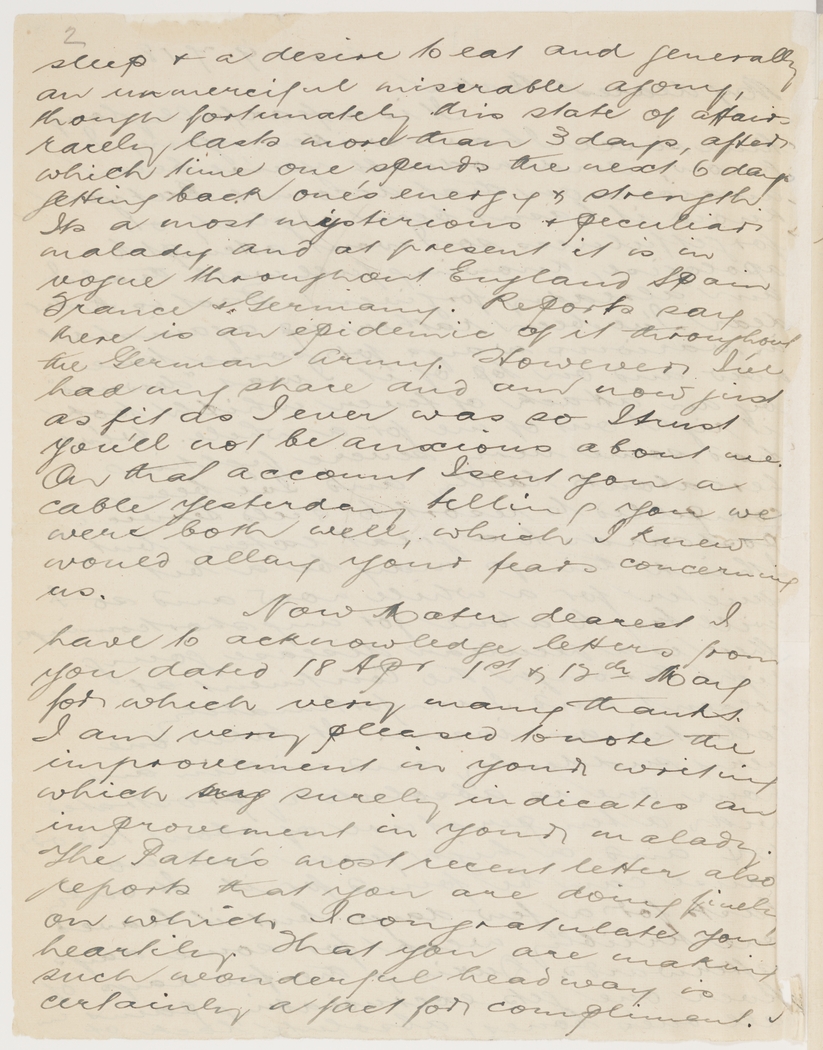 2
sleep & a desire to eat and generally
an unmerciful miserable agony,
though fortunately this state of affairs
rarely lasts more than 3 days, after
which time one spends the next 6 days
getting back one's energy & strength
Its a most mysterious & peculiar
malady and at present it is in
vogue throughout England Spain
France & Germany. Reports say
there is an epidemic of it throughout
the German Army. However I've
had my share and am now just
as fit as I ever was so I trust
you'll not be anxious about me.
On that account I sent you a
cable yesterday telling you we
were both well, which I knew
would allay your fears concerning
us.
Now Mater dearest I
have to acknowledge letters from
you dated 18 Apr 1st & 12th May
for which very many thanks.
I am very pleased to note the
improvement in your writing
which surely indicates an
improvement in your malady.
The Pater's most recent letter also
reports that you are doing finely
on which I congratulate you
heartily. That you are making
such wonderful headway is
certainly a fact for compliment.